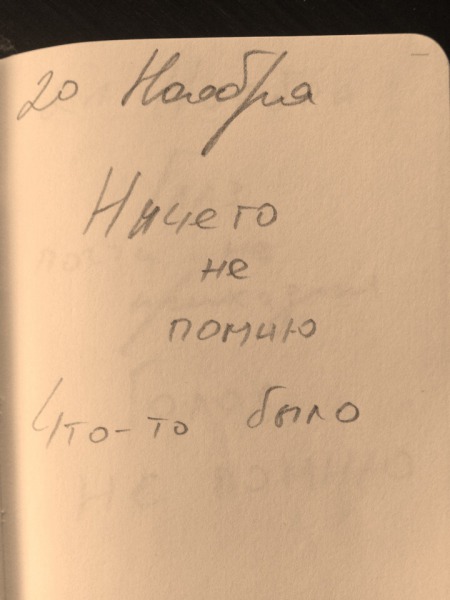 20 Ноября
Ничего
не
помню
Что-то было